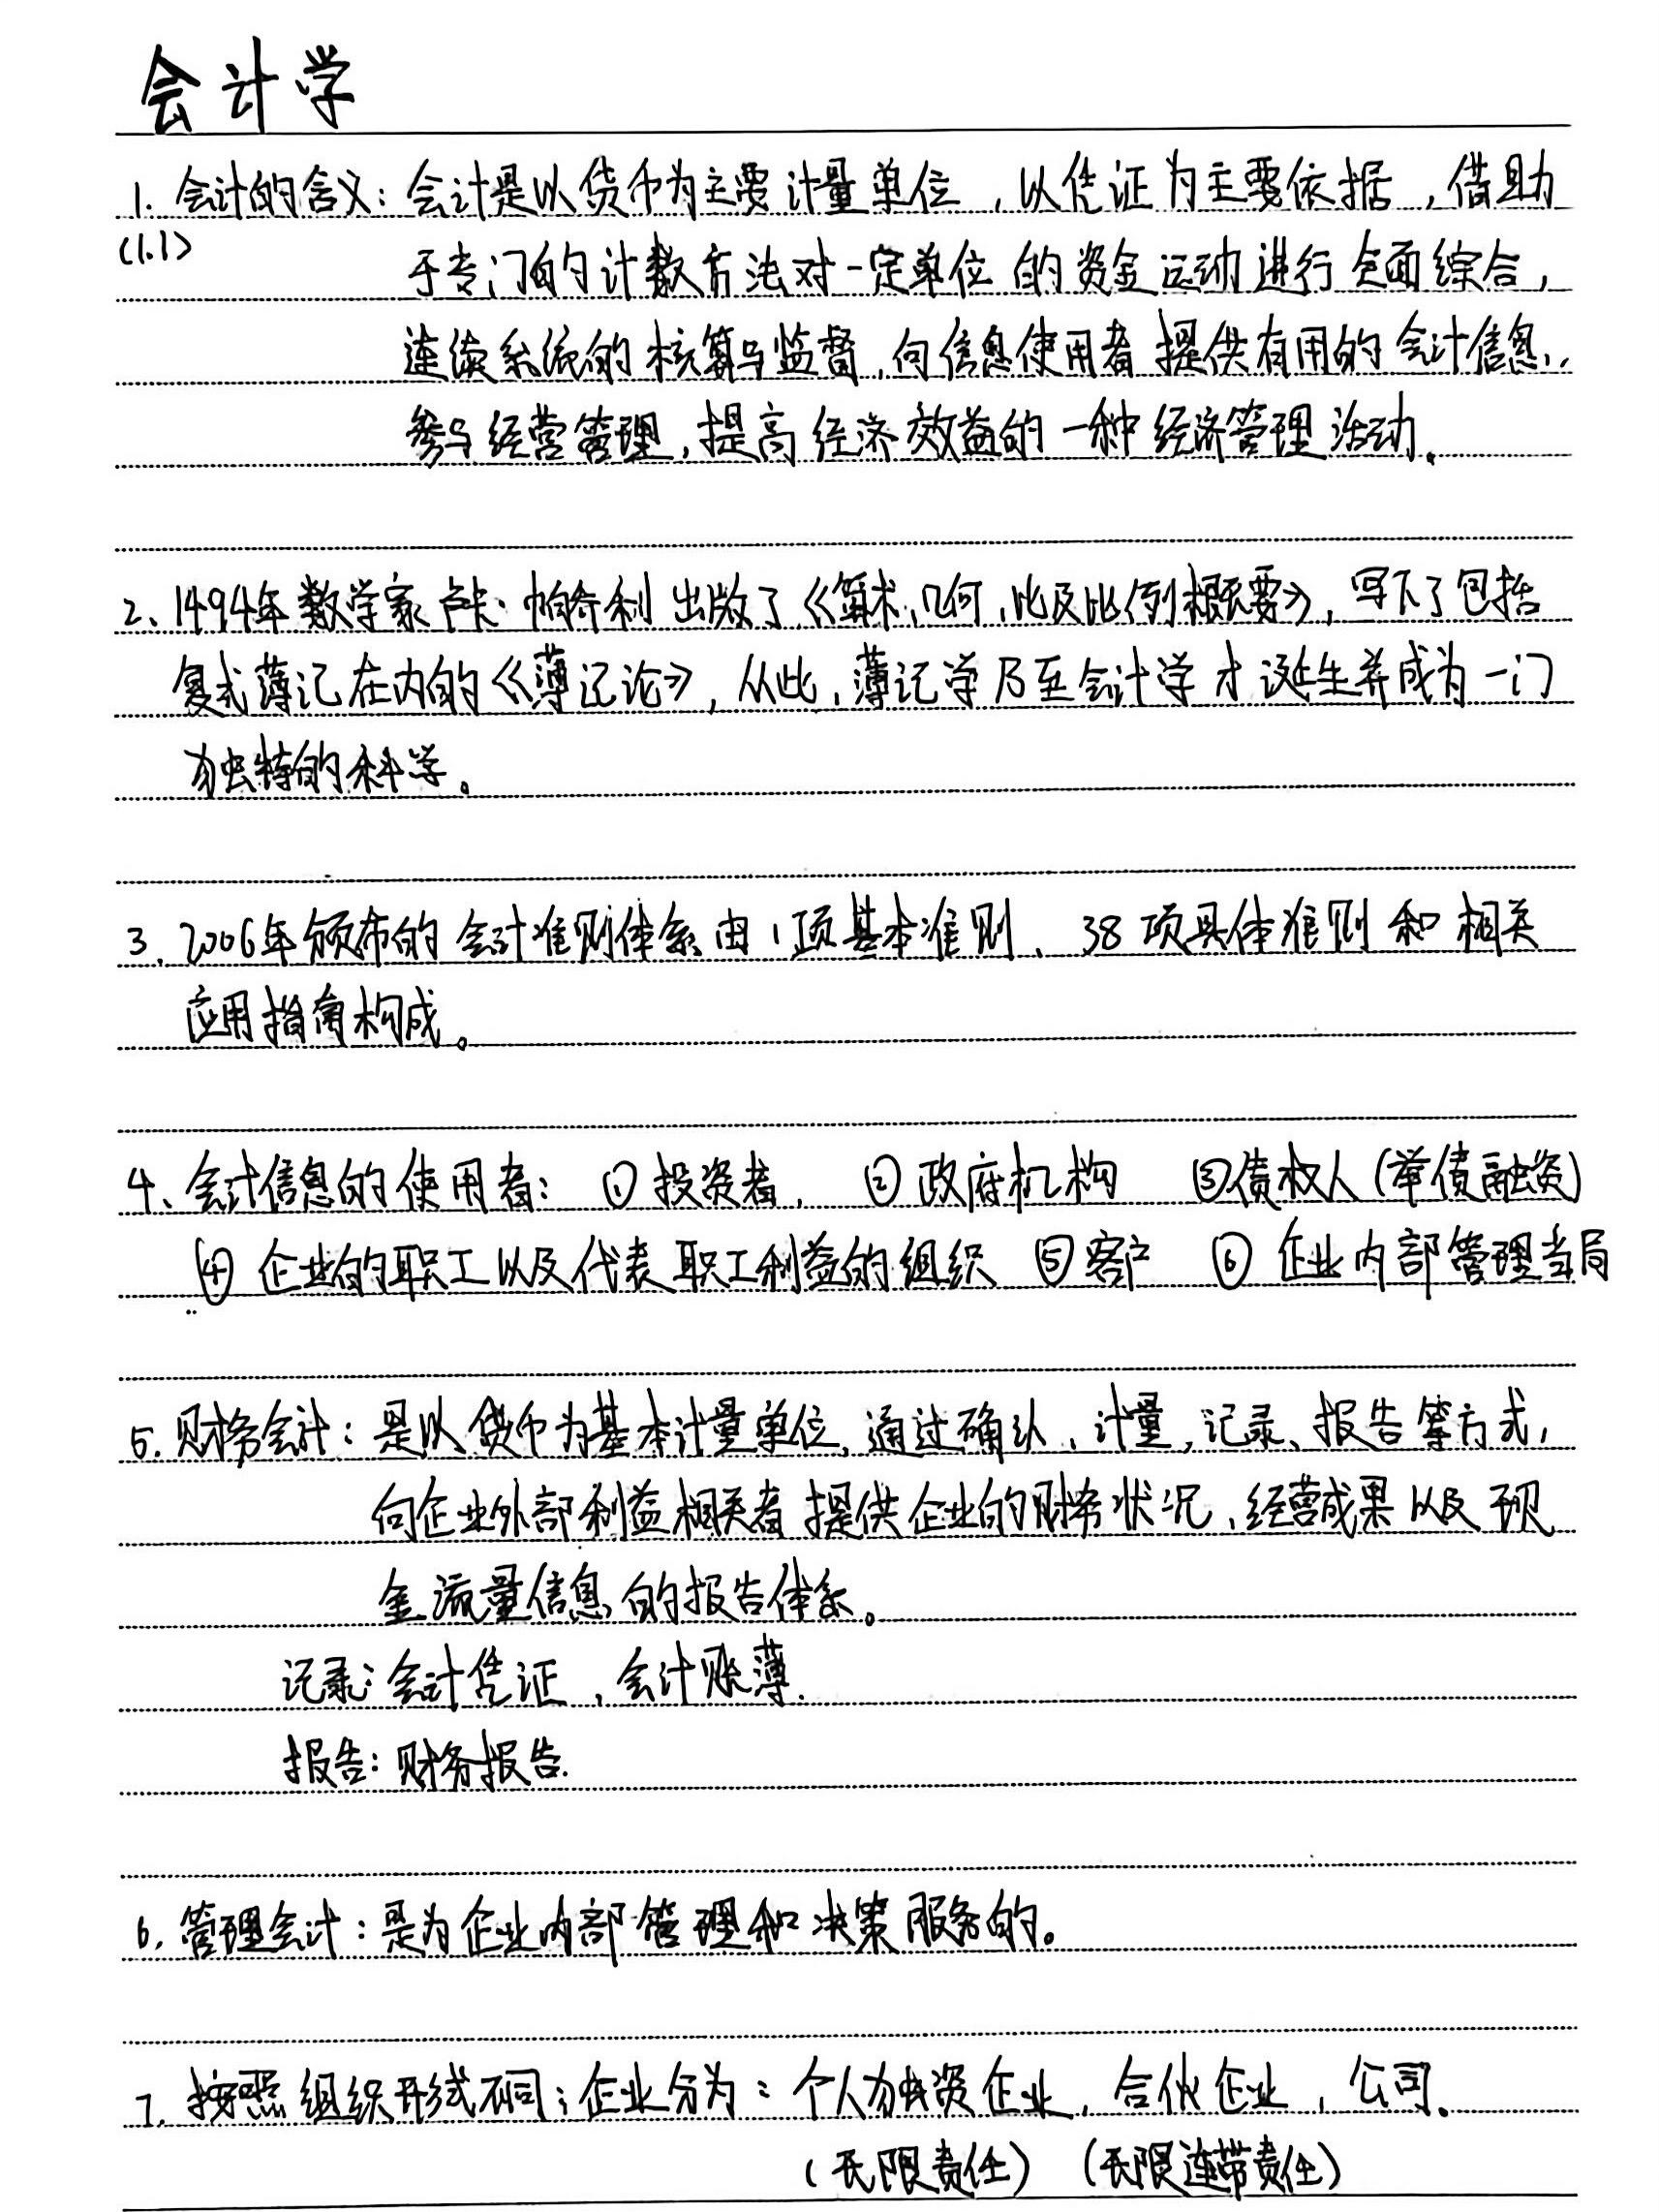 会计学
1. 会计的含义：会计是以货币为主要计量单位，以凭证为主要依据，借助
(1.1)
于专门的计数方法对一定单位的资金运动进行全面综合，
连续系统的核算与监督，向信息使用者提供有用的会计信息，
参与经营管理，提高经济效益的一种经济管理活动。
2、1494年数学家卢卡·帕乔利出版了《算术，几何，比及比例概要》，写下了包括
复式薄记在内的《薄记论》，从此，薄记学乃至会计学才诞生并成为一门
独特的科学。
3、2006年颁布的会计准则体系由1项基本准则、38项具体准则和相关
应用指南构成。
4、会计信息的使用者：①投资者、②政府机构 ③债权人(举债融资)
④企业的职工以及代表职工利益的组织 ⑤客户 ⑥企业内部管理当局
5. 财务会计：是以货币为基本计量单位，通过确认、计量，记录、报告等方式，
向企业外部利益相关者提供企业的财务状况、经营成果以及现
金流量信息的报告体系。
记录：会计凭证、会计账薄.
报告：财务报告.
6. 管理会计：是为企业内部管理和决策服务的。
7. 按照组织形式不同；企业分为：个人独资企业，合伙企业，公司。
(无限责任) (无限连带责任)